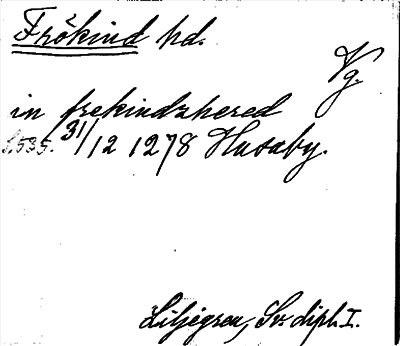 Frökind hd.
Vg.
in frekindzhered
s. 535. 31/12 1278 Husaby.
Liljegren, Sv. dipl. I.